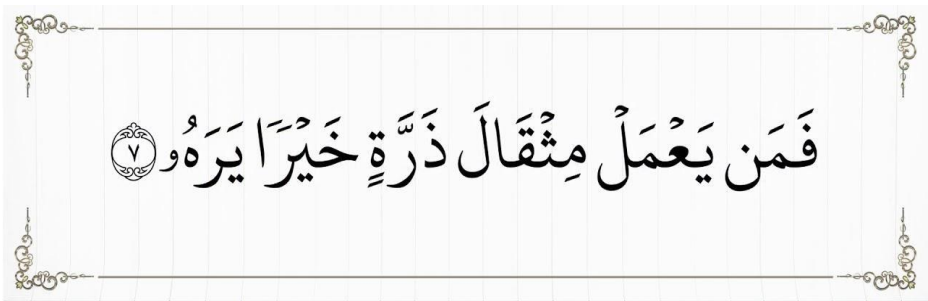 فَمَن يَعْمَلْ مِثْقَالَ ذَرَّةٍ خَيْرًا يَرَهُۥ ٧